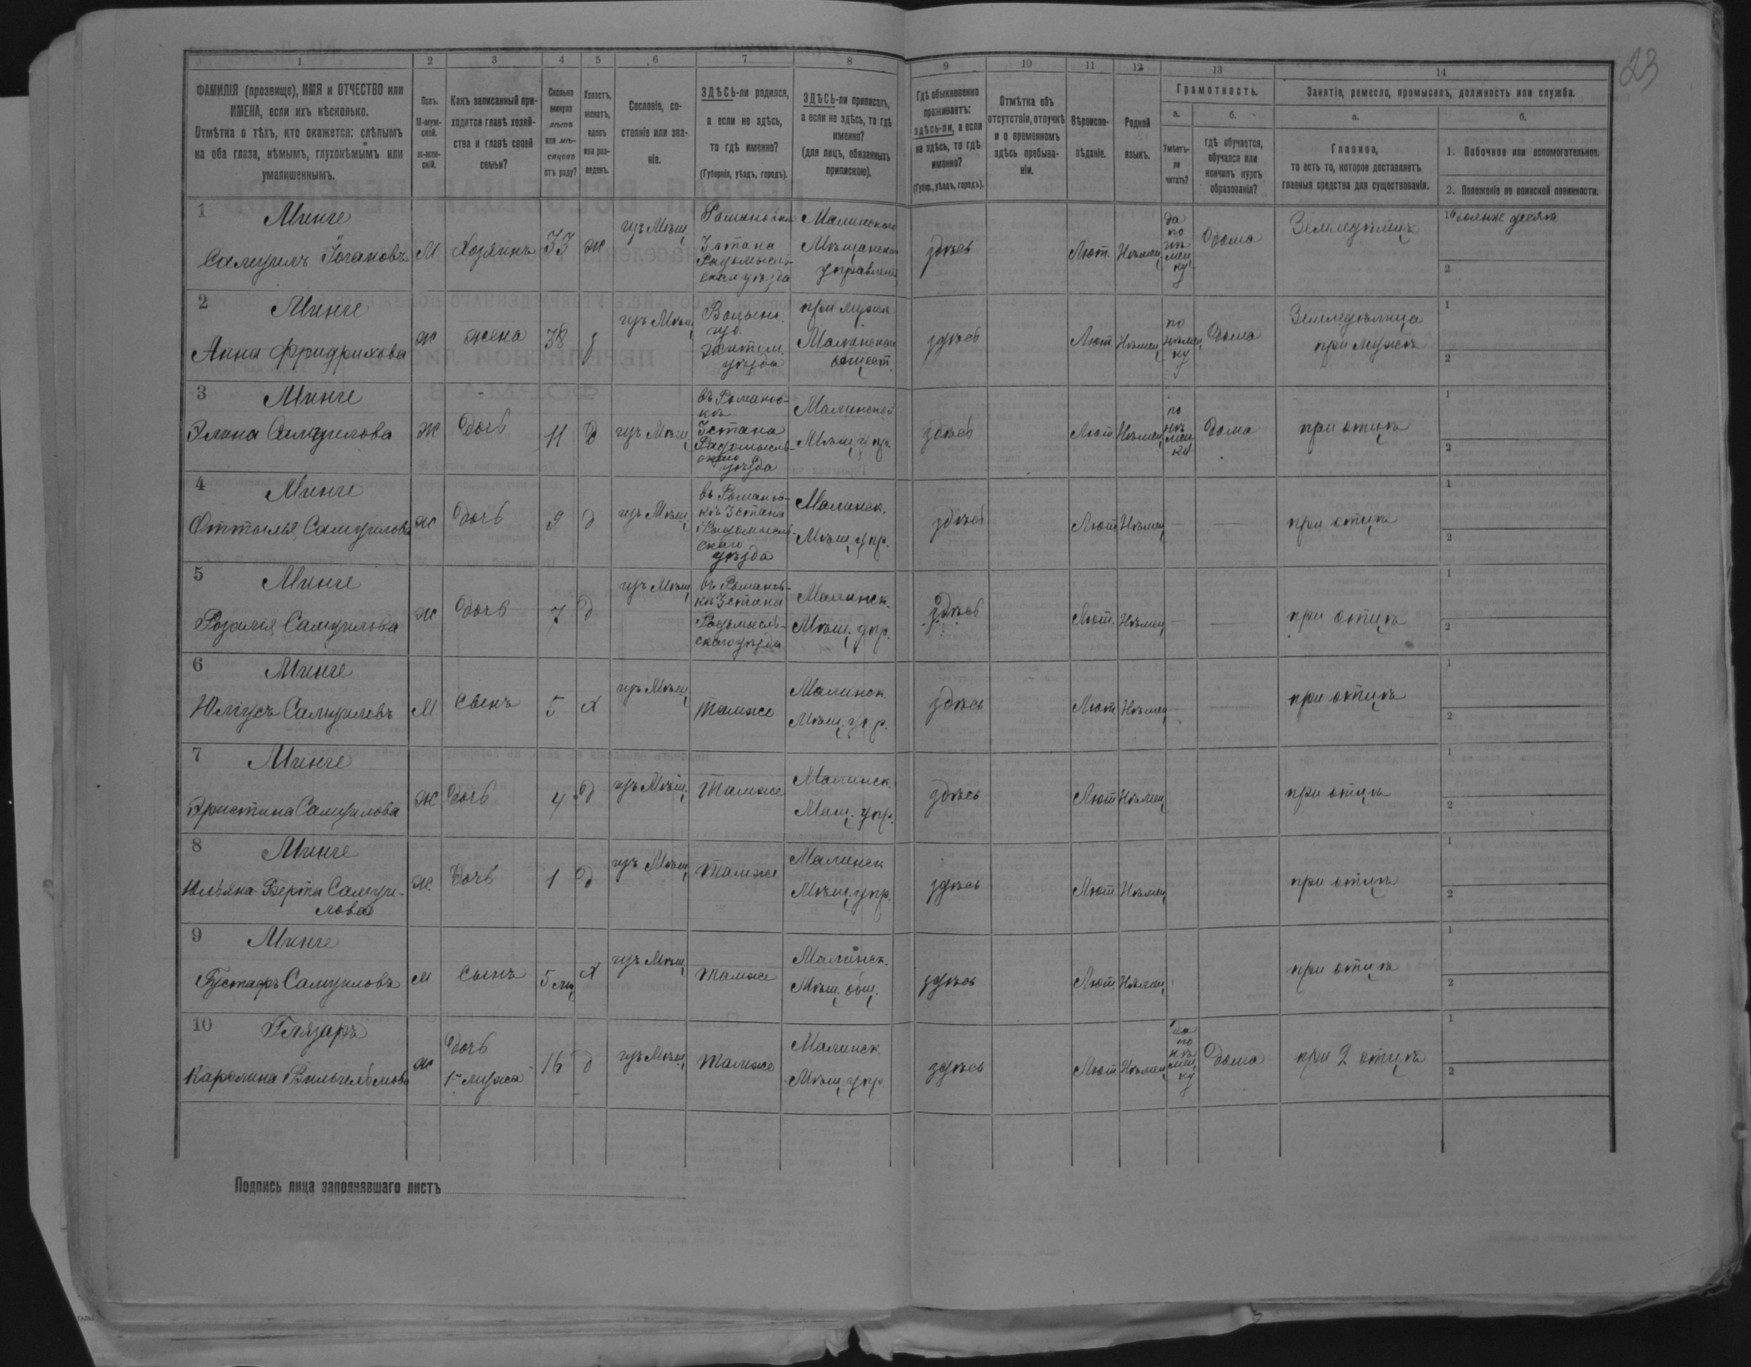 23
1 2 3 4 5 6 7 8 9 10 11 12 13 14
ФАМИЛІЯ (прозвище), ИМЯ и ОТЧЕСТВО или
ИМЕНА, если ихъ нѣсколько.
Отмѣтка о тѣхъ, кто окажется: слѣпымъ
на оба глаза, нѣмымъ, глухонѣмымъ или
умалишеннымъ.
Полъ.
М-муж-
ской.
Ж-жен-
скій.
Какъ записанный при-
ходится главѣ хозяй-
ства и главѣ своей
семьи?
Сколько
минуло
лѣтъ
или мѣ-
сяцевъ
отъ роду?
Холостъ,
женатъ,
вдовъ
или раз-
веденъ.
Сословіе, со-
стояніе или зва-
ніе.
ЗДѢСЬ-ли родился,
а если не здѣсь,
то гдѣ именно?
(Губернія, уѣздъ, городъ).
ЗДѢСЬ-ли приписанъ,
а если не здѣсь, то гдѣ
именно?
(для лицъ, обязанныхъ
припискою).
Гдѣ обыкновенно
проживаетъ:
здѣсь-ли, а если
не здѣсь, то гдѣ
именно?
(Губер., уѣздъ, городъ).
Отмѣтка объ
отсутствіи, отлучкѣ
и о временномъ
здѣсь пребыва-
ніи.
Вѣроиспо-
вѣданіе.
Родной
языкъ.
Грамотность.
а.
Умѣетъ-
ли
читать?
б.
гдѣ обучается,
обучался или
кончилъ курсъ
образованія?
Занятіе, ремесло, промыселъ, должность или служба.
а.
Главное,
то есть то, которое доставляетъ
главныя средства для существованія.
б.
1. Побочное или вспомогательное.
2. Положеніе по воинской повинности.
1 Минге
Самуилъ Іогановъ М Хозяинъ 33 ж изъ Мѣщ Романовка
Зстана
Радомысль-
скаго уѣзда
Малинскаго
Мѣщанскаго
управленія
здѣсь Лют. Нѣмец
да
по
нѣ
мец
ку
Дома Земледѣлецъ
1
2
2 Минге
Анна Фридрихова Ж жена 38 з изъ Мѣщ
Волынс.
губ.
Житом.
уѣзда
при мужѣ
Малинскаго
общест.
здѣсь Лют Нѣмец
по
нѣмец
ку
Дома
Земледѣлица
при мужѣ
1
2
3 Минге
Элина Самуилова Ж дочь 11 д изъ Мѣщ
въ Романов-
кѣ
Зстана
Радомысль-
скаго
уѣзда
Малинской
Мѣщ. упр.
здѣсь Лют Нѣмец
по
нѣ
мец
ку
Дома при отцѣ
1
2
4 Минге
Оттилья Самуилова ж дочь 9 д изъ Мѣщ
въ Романов-
кѣ Зстана
Радомысль-
скаго
уѣзда
Малинск.
Мѣщ. упр.
здѣсь Лют Нѣмец — при отцѣ
1
2
5 Минге
Розалія Самуилова Ж дочь 7 д изъ Мѣщ
въ Романов-
кѣ Зстана
Радомысль-
скаго уѣзда
Малинск.
Мѣщ. упр.
здѣсь Лют. Нѣмец — — при отцѣ
1
2
6 Минге
Юлiусъ Самуиловъ М сынъ 5 х изъ Мѣщ
тамже
Малинск
Мѣщ. упр.
здѣсь Лют Нѣмец — при отцѣ
1
2
7 Минге
Христина Самуилова Ж дочь 4 д изъ Мѣщ. тамже
Малинск.
Мѣщ. упр.
здѣсь Лют Нѣмец при отцѣ
1
2
8 Минге
Юльяна Берта Самуи-
лова
Ж дочь 1 д изъ Мѣщ тамже
Малинск
Мѣщ. упр.
здѣсь Лют Нѣмец при отцѣ
1
2
9 Минге
Густавъ Самуиловъ М сынъ 5 мц х изъ Мѣщ тамже
Малинск.
Мѣщ. общ.
здѣсь Лют Нѣмец при отцѣ
1
2
10 Глязаръ
Каролина Вильгельмова ж
дочь
1го мужа
16 д изъ Мѣщ тамже
Малинск.
Мѣщ. упр.
здѣсь Лют Нѣмец
да
по
нѣ
мец
ку
Дома при 2 отцѣ
1
2
Подпись лица заполнявшаго листъ